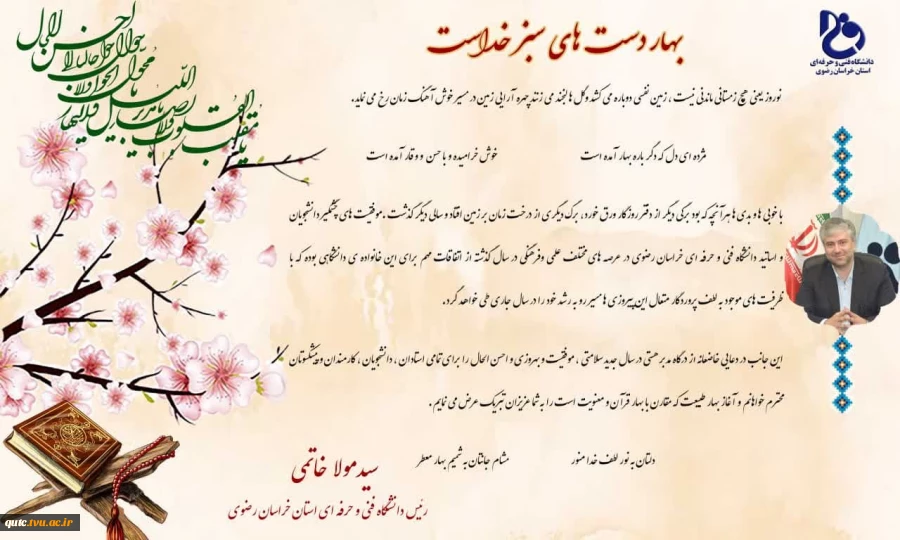 بهار دست های سبز خداست
دانشگاه فنی و حرفه ای
استان خراسان رضوی
نوروز یعنی هیچ زمستانی ماندنی نیست ، زمین نفسی دوباره می کشد و گل ها لبخند می زنند چهره آرایی زمین در مسیر خوش آهنگ زمان رخ می نماید.
مژده ای دل که دگر باره بهار آمده است
خوش خرامیده و با حسن و وقار آمده است
با خوبی ها و بدی ها هر آنچه که بود برگی دیگر از دفتر روزگار ورق خورد، برگ دیگری از درخت زمان بر زمین افتاد و سالی دیگر گذشت .موفقیت های چشمگیر دانشجویان
و اساتید دانشگاه فنی و حرفه ای خراسان رضوی در عرصه های مختلف علمی وفرهنگی در سال گذشته از اتفاقات مهم برای این خانواده ی دانشگاهی بوده که با
ظرفیت های موجود به لطف پروردگار متعال این پیروزی ها مسیر رو به رشد خود را در سال جاری طی خواهد کرد.
این جانب در دعایی خاضعانه از درگاه مدبر هستی درسال جدید سلامتی ، موفقیت و بهروزی و احسن الحال را برای تمامی استادان ، دانشجویان ، کارمندان و پیشکسوتان
محترم خواهانم و آغاز بهار طبیعت که مقارن با بهار قرآن و معنویت است را به شما عزیزان تبریک عرض می نمایم.
دلتان به نور لطف خدا منور
مشام جانتان به شمیم بهار معطر
سید مولا خاتمی
رئیس دانشگاه فنی و حرفه ای استان خراسان رضوی
qutc.tvu.ac.ir